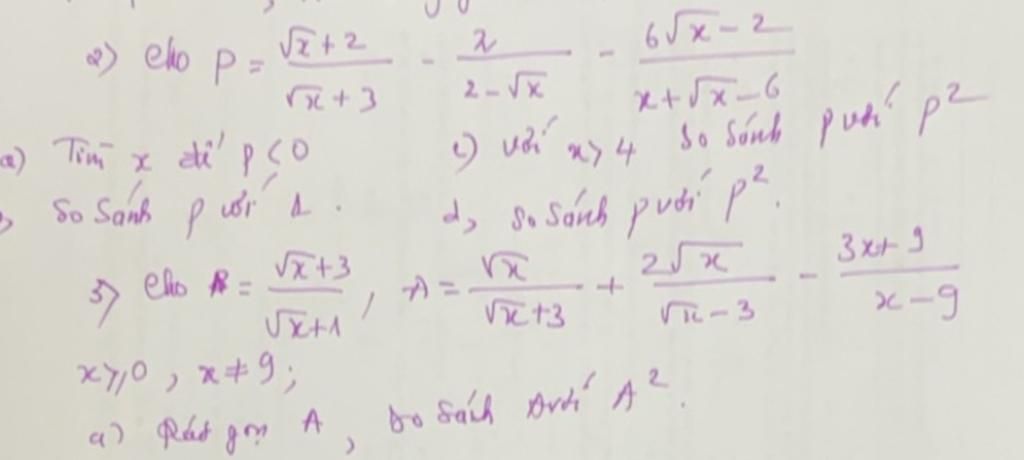 2) Cho P = (√x + 2)/(√x + 3) - 2/(2 - √x) - (6√x - 2)/(x + √x - 6)
a) Tìm x để P < 0 c) với x > 4 so sánh P với P²
so sánh P với 1. d, so sánh P với P².
3) Cho B = (√x + 3)/(√x + 1), A = √x/(√x + 3) + 2√x/(√x - 3) - (3x + 9)/(x - 9)
x ≥ 0, x ≠ 9;
a) Rút gọn A, so sánh A với A².